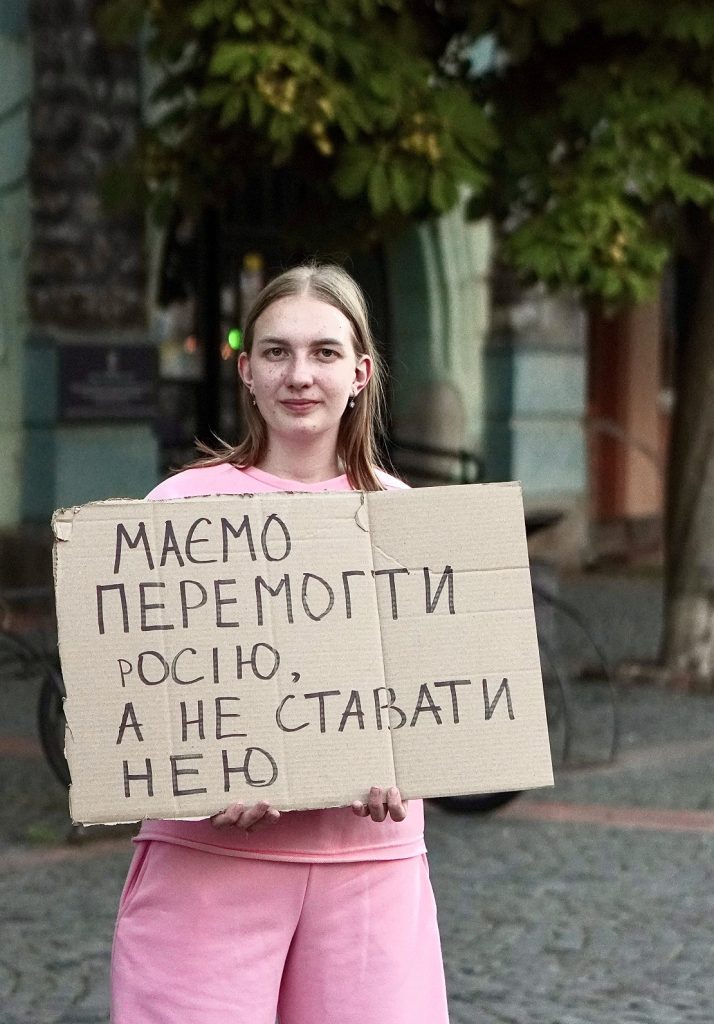 МАЄМО
ПЕРЕМОГТИ
рОСІЮ,
А НЕ СТАВАТИ
НЕЮ